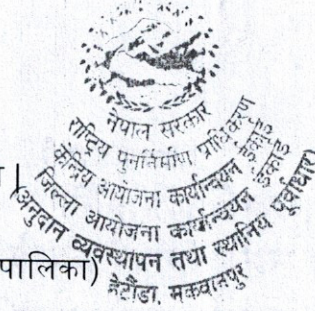 नेपाल सरकार
राष्ट्रिय पुनर्निर्माण प्राधिकरण
केन्द्रिय आयोजना कार्यान्वयन इकाई
जिल्ला आयोजना कार्यान्वयन इकाई
(अनुदान व्यवस्थापन तथा स्थानिय पूर्वाधार)
पालिका)
हेटौंडा, मकवानपुर